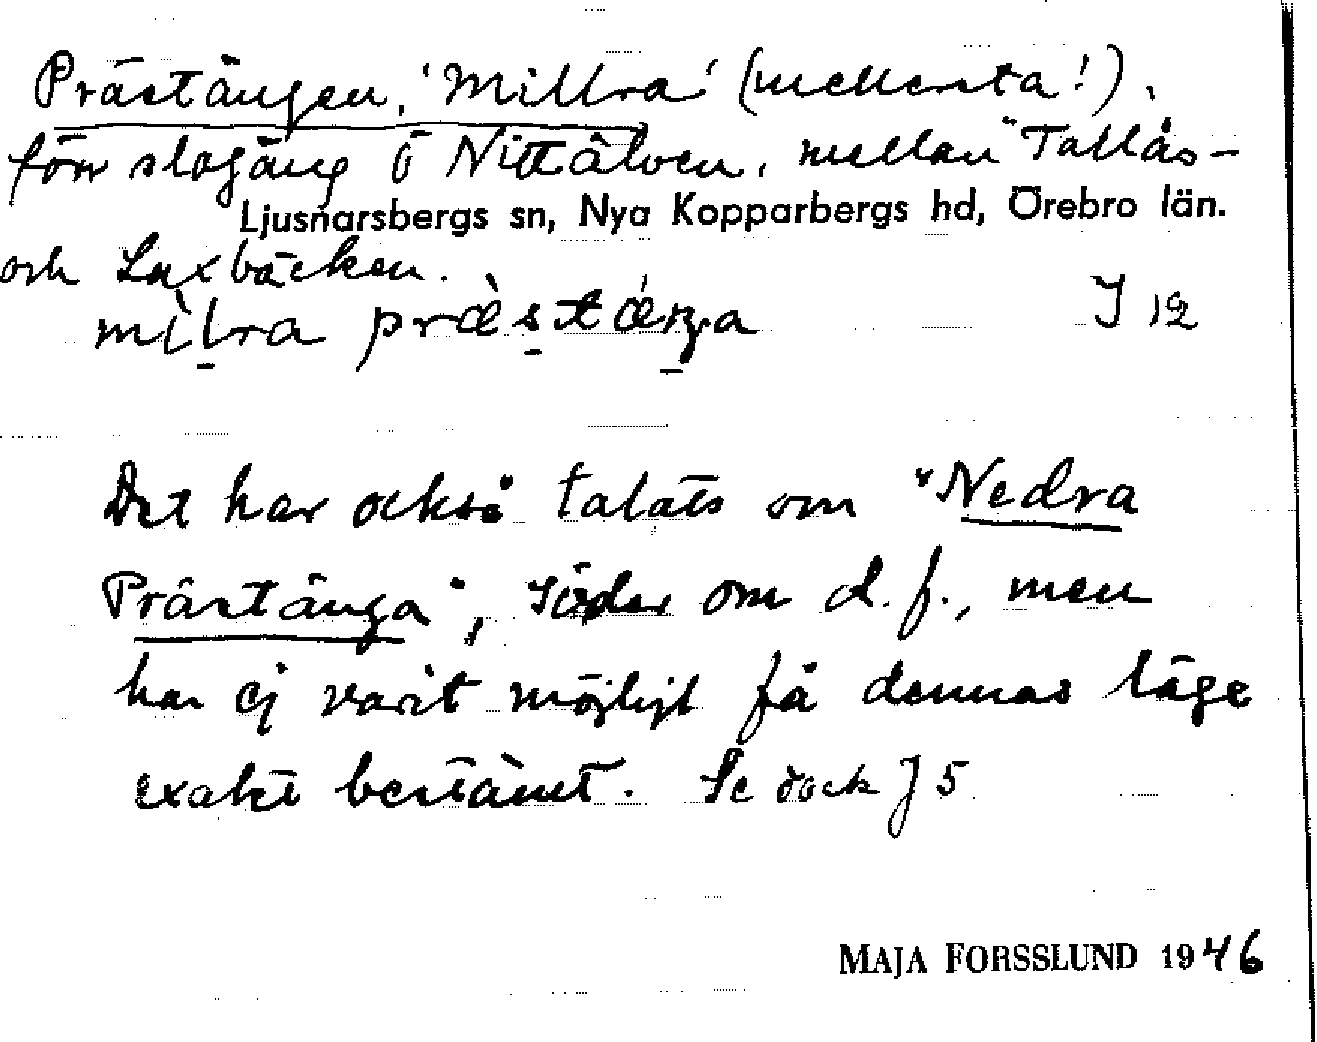 Prästängen, 'Millra' (mellersta!),
förr slogäng Ö Nittälven, mellan "Tallås-
Ljusnarsbergs sn, Nya Kopparbergs hd, Örebro län.
och Laxbäcken.
J 12
Det har också talats om "Nedra
Prästänga", söder om d. f., men
har ej varit möjligt få dennas läge
exakt bestämt. Se dock J 5
MAJA FORSSLUND 1946